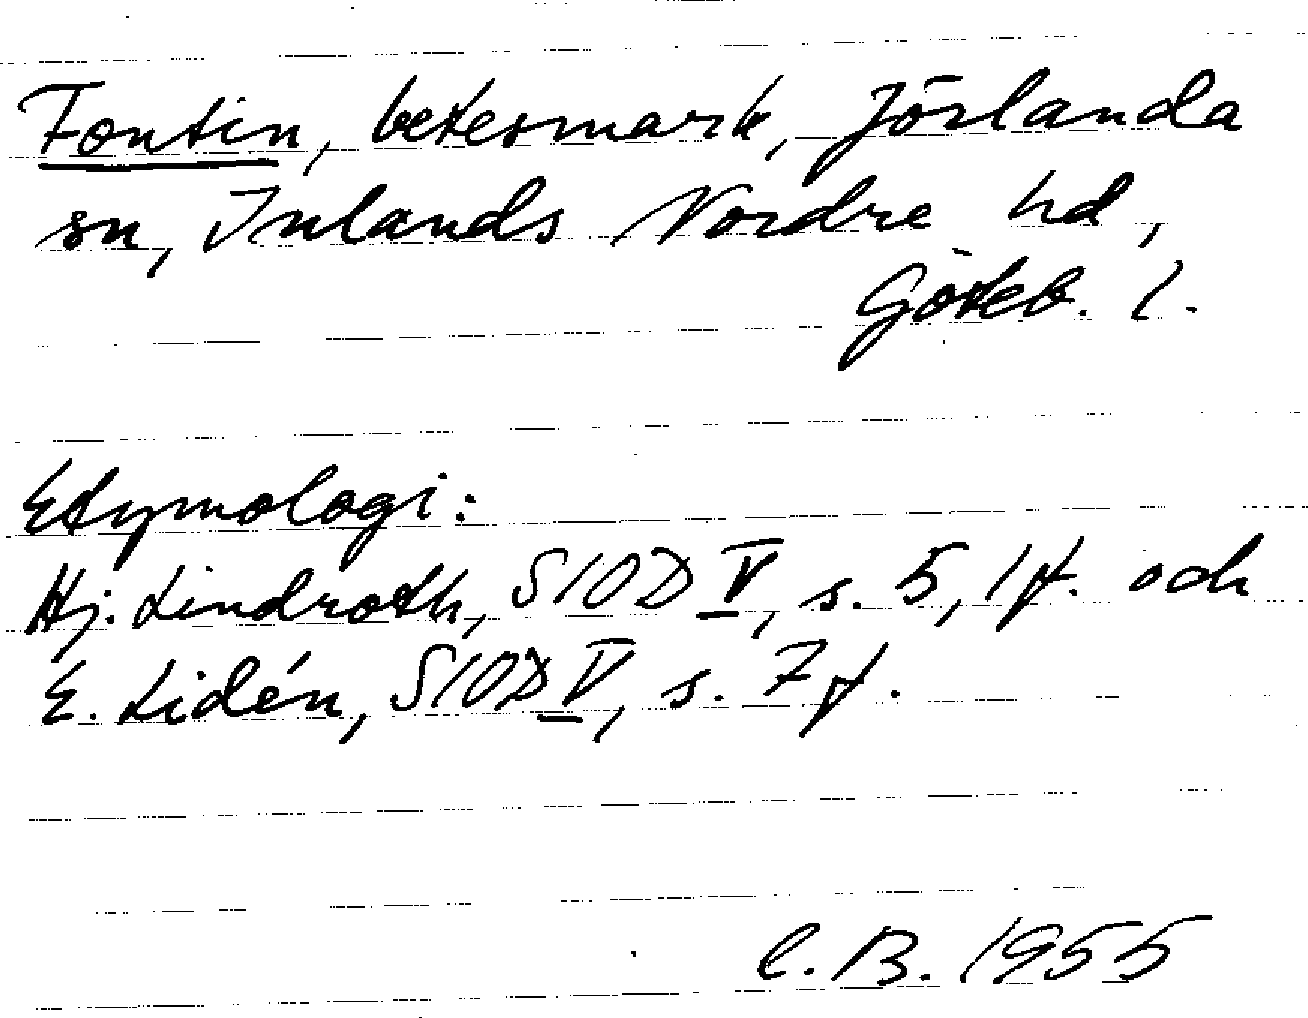 Fontin, betesmark, Jörlanda
sn, Inlands Nordre hd,
Göteb. l.
Etymologi:
Hj. Lindroth, SIOD V, s. 5, 1 f. och
E. Lidén, SIOD V, s. 7 f.
C. B. 1955